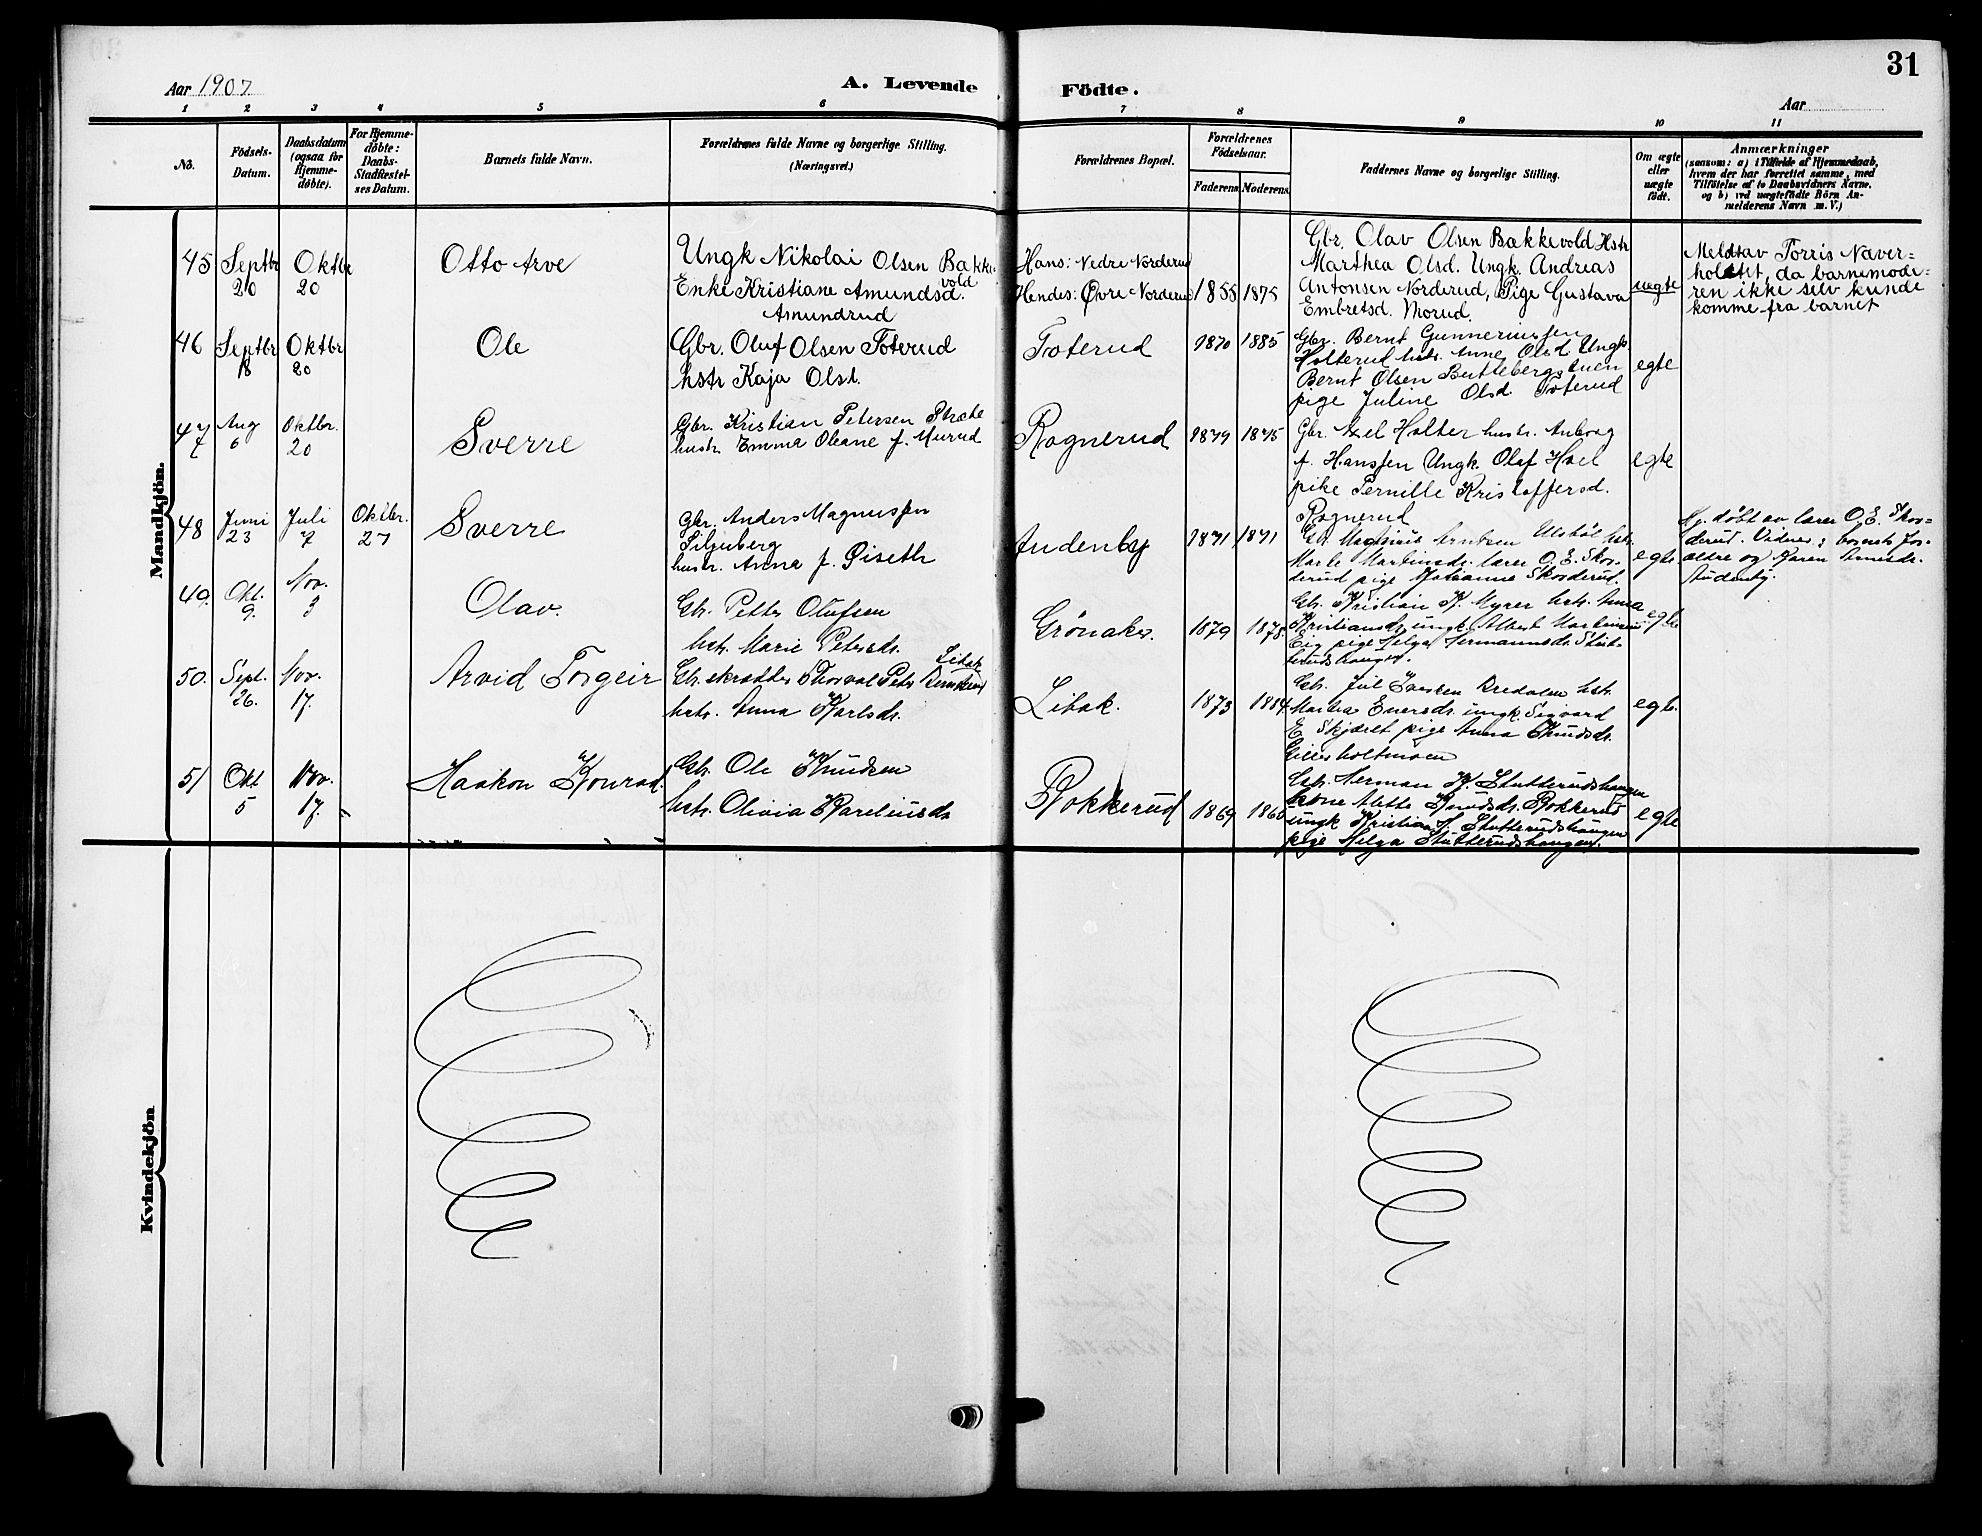 31
Aar 1907
A. Levende
Födte.
Aar
1 2 3 4 5 6 7 8 9 10 11
No.
Födsels-
Datum.
Daabsdatum
(ogsaa for
Hjemme-
döbte).
For Hjemme-
döbte:
Daabs-
Stadfæstel-
ses Datum.
Barnets fulde Navn.
Forældrenes fulde Navne og borgerlige Stilling.
(Næringsvei.)
Forældrenes Bopæl.
Forældrenes
Födselsaar.
Faderens
Moderens.
Faddernes Navne og borgerlige Stilling.
Om ægte
eller
uægte
födt.
Anmærkninger
(saasom: a) i Tilfælde af Hjemmedaab,
hvem der har forrettet samme, med
Tilföielse af to Daabsvidners Navne.
og b) ved uægtefödte Börn An-
melderens Navn m. V.)
Mandkjön.
45
Septbr
20
Oktbr
20
Otto Arve
Ungk Nikolai Olsen Bakke-
vold
Enke Kristiane Amundsd.
Amundrud
Hans: Nedre Norderud
Hendes: Øvre Norderud
1855
1875
Gbr. Olav Olsen Bakkevold Hstr
Marthea Olsd. Ungk. Andreas
Antonsen Norderud, Pige Gustava
Embretsd. Morud.
uegte
Meldt av Torris Naver-
holtet, da barnemode-
ren ikke selv kunde
komme fra barnet
46
Septbr
18
Oktbr
20
Ole
Gbr. Oluf Olsen Toterud
hstr Kaja Olsd.
Toterud
1870
1885
Gbr. Bernt Gunneriussen
Holterud hstr. Anne Olsd Ungk
Bernt Olsen Buttebergstuen
pige Juline Olsd. Toterud
egte
47
Aug
6
Oktbr.
20
Sverre
Gbr. Kristian Petersen Stræte
hustr. Emma Oleane f. Murud
Rognerud
1879
1875
Gbr. Axel Holter hustr. Anborg
f. Hanssen Ungk. Olaf Hoel
pike Pernille Kristoffersd.
Rognerud
egte
48
Juni
23
Juli
7
Oktbr.
27
Sverre
Gbr. Anders Magnussen
hustr. Anna f. Giseth
Audenby
1871
1871
Marte Martinsdr. lærer O. E. Skos-
derud pige Johanne Skosderud.
egte
Hj. døbt av lærer O. E. Skos-
derud. Vidner: barnets for-
ældre og Karen
Audenby.
49.
Okt.
9.
Nov.
3
Olav.
Gbr. Petter Olufsen
hstr. Marie Petersdr.
Grønaker.
1879
1878.
Gbr. Kristian K. Myrer hstr. Anna
Kristiansdr. ungk. Albert Martinius.
Eig pige Helga Hermannsdr. Stut-
terudshaugen.
egte
50.
Sept.
26.
Nov.
17.
Arvid Torgeir
Libak
Gbr. skrædder Thorval Peter
hstr. Anna Karlsdr.
Libak.
1873
1884.
Gbr. Jul Iversen Bredalen hstr.
Martea Evensdr. ungk. Sigvard
E. Skjæret pige Anna Knudsdr.
Gillesholtmoen
egte.
51
Okt
5
Nov.
17.
Haakon Konrad.
Gbr. Ole Knudsen
hstr. Olivia Kareliusdr
Rokkerud
1869
1860
Gbr. Herman K. Stutterudshaugen
kone Mette Knudsdr. Rokkerud
ungk Kristian H. Stutterudshaugen
pige Helga Stutterudshaugen.
egte
Kvindekjön